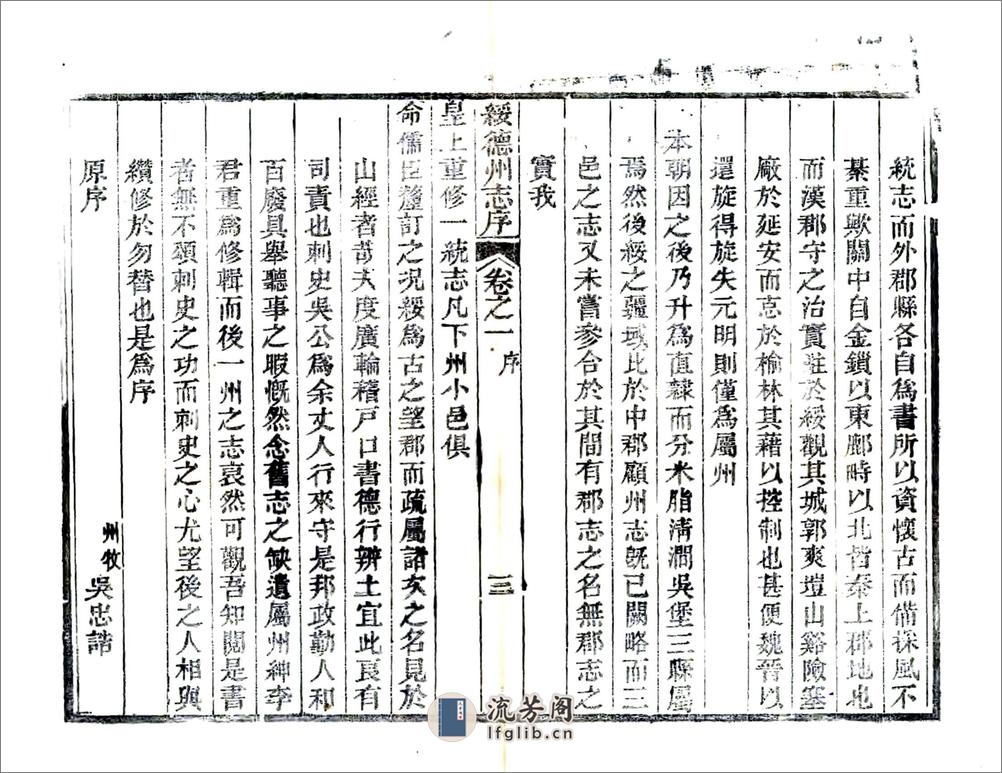 統志而外郡縣各自爲書所以資懷古而備採風不
綦重歟關中自金鎖以東鄜畤以北皆秦上郡地也
而漢郡守之治實駐於綏觀其城郭爽塏山谿險塞
廠於延安而志於榆林其藉以控制也甚便魏晉以
還旋得旋失元明則僅爲屬州
本朝因之後乃升爲直隸而分米脂淸澗吳堡三縣屬
焉然後綏之疆域比於中郡顧州志旣已闕略而三
邑之志又未嘗參合於其間有郡志之名無郡志之
實我
綏德州志序 卷之一 序 三
皇上重修一統志凡下州小邑俱
命儒臣釐訂之况綏爲古之望郡而疏屬諸次之名見於
山經者哉夫度廣輪稽戸口書德行辨土宜此良有
司責也刺史吳公爲余丈人行來守是邦政勤人和
百廢具舉聽事之暇慨然念舊志之缺遺屬州紳李
君重爲修輯而後一州之志裒然可觀吾知閱是書
者無不頌刺史之功而刺史之心尤望後之人相與
纘修於勿替也是爲序
原序 州牧 吳忠誥
流芳阁
lfglib.cn